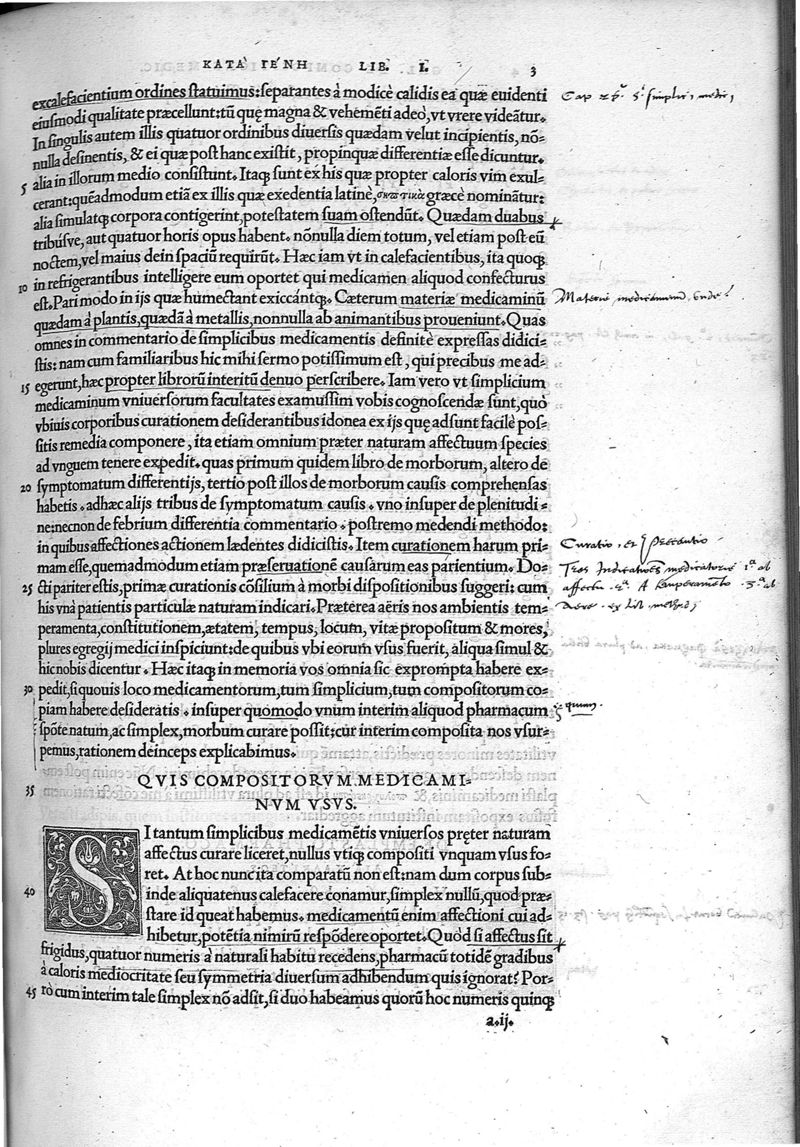 ΚΑΤᾺ ΓΈΝΗ LIB. I. 3
excalefacientium ordines statuimus: separantes à modicè calidis ea quæ euidenti
eiusmodi qualitate præcellunt: tũ quę magna & vehemẽti adeò, vt vrere videãtur.
In singulis autem illis quatuor ordinibus diuersis quædam velut incipientis, nõ-
nulla desinentis, & ei quæ post hanc existit, propinquæ differentiæ esse dicuntur.
alia in illorum medio consistunt. Itaq; sunt ex his quæ propter caloris vim exul-
5
cerant: quẽadmodum etiã ex illis quæ exedentia latinè, σηπτικὰ græcè nominãtur:
alia simulatq; corpora contigerint, potestatem suam ostendũt. Quædam duabus
tribúsve, aut quatuor horis opus habent. nõnulla diem totum, vel etiam post eũ
noctem, vel maius dein spaciũ requirũt. Hæc iam vt in calefacientibus, ita quoq;
10 in refrigerantibus intelligere eum oportet qui medicamen aliquod confecturus
est. Pari modo in ijs quæ humectant exiccántq;. Cæterum materiæ medicaminũ
quædam à plantis, quædã à metallis, nonnulla ab animantibus proueniunt. Quas
omnes in commentario de simplicibus medicamentis definitè expressas didici-
stis: nam cum familiaribus hic mihi sermo potissimum est, qui precibus me ad-
15 egerunt, hæc propter librorũ interitũ denuo perscribere. Iam vero vt simplicium
medicaminum vniuersorum facultates examussim vobis cognoscendæ sunt, quò
vbiuis corporibus curationem desiderantibus idonea ex ijs quę adsunt facilè pos-
sitis remedia componere, ita etiam omnium præter naturam affectuum species
ad vnguem tenere expedit. quas primum quidem libro de morborum, altero de
20 symptomatum differentijs, tertio post illos de morborum causis comprehensas
habetis. adhæc alijs tribus de symptomatum causis. vno insuper de plenitudi-
ne: necnon de febrium differentia commentario. postremo medendi methodo:
in quibus affectiones actionem lædentes didicistis. Item curationem harum pri-
mam esse, quemadmodum etiam præseruationẽ causarum eas parientium. Do-
25 cti pariter estis, primæ curationis cõsilium à morbi dispositionibus suggeri: cum
his vnà patientis particulæ naturam indicari. Præterea aëris nos ambientis tem-
peramenta, constitutionem, ætatem, tempus, locum, vitæ propositum & mores,
plures egregij medici inspiciunt: de quibus vbi eorum vsus fuerit, aliqua simul &
hic nobis dicentur. Hæc itaq; in memoria vos omnia sic exprompta habere ex-
30 pedit, si quouis loco medicamentorum, tum simplicium, tum compositorum co-
piam habere desideratis. insuper quomodo vnum interim aliquod pharmacum
spõte natum, ac simplex, morbum curare possit: cur interim composita nos vsur-
pemus, rationem deinceps explicabimus.
QVIS COMPOSITORVM MEDICAMI-
35
NVM VSVS.
SI tantum simplicibus medicamẽtis vniuersos pręter naturam
affectus curare liceret, nullus vtiq; compositi vnquam vsus fo-
ret. At hoc nunc ita comparatũ non est: nam dum corpus sub-
40 inde aliquatenus calefacere conamur, simplex nullũ, quod præ-
stare id queat habemus. medicamentũ enim affectioni cui ad-
hibetur, potẽtia nimirũ respõdere oportet. Quòd si affectus sit
frigidus, quatuor numeris à naturali habitu recedens, pharmacũ totidẽ gradibus
à caloris mediocritate seu symmetria diuersum adhibendum quis ignorat? Por-
45 rò cum interim tale simplex nõ adsit, si duo habeamus quorũ hoc numeris quinq;
a.ij.
Curatio, et Precautio
Tres Indicationes medicatoriæ 1ª ab
affectu. 2ª. A temperamẽto 3ª ab